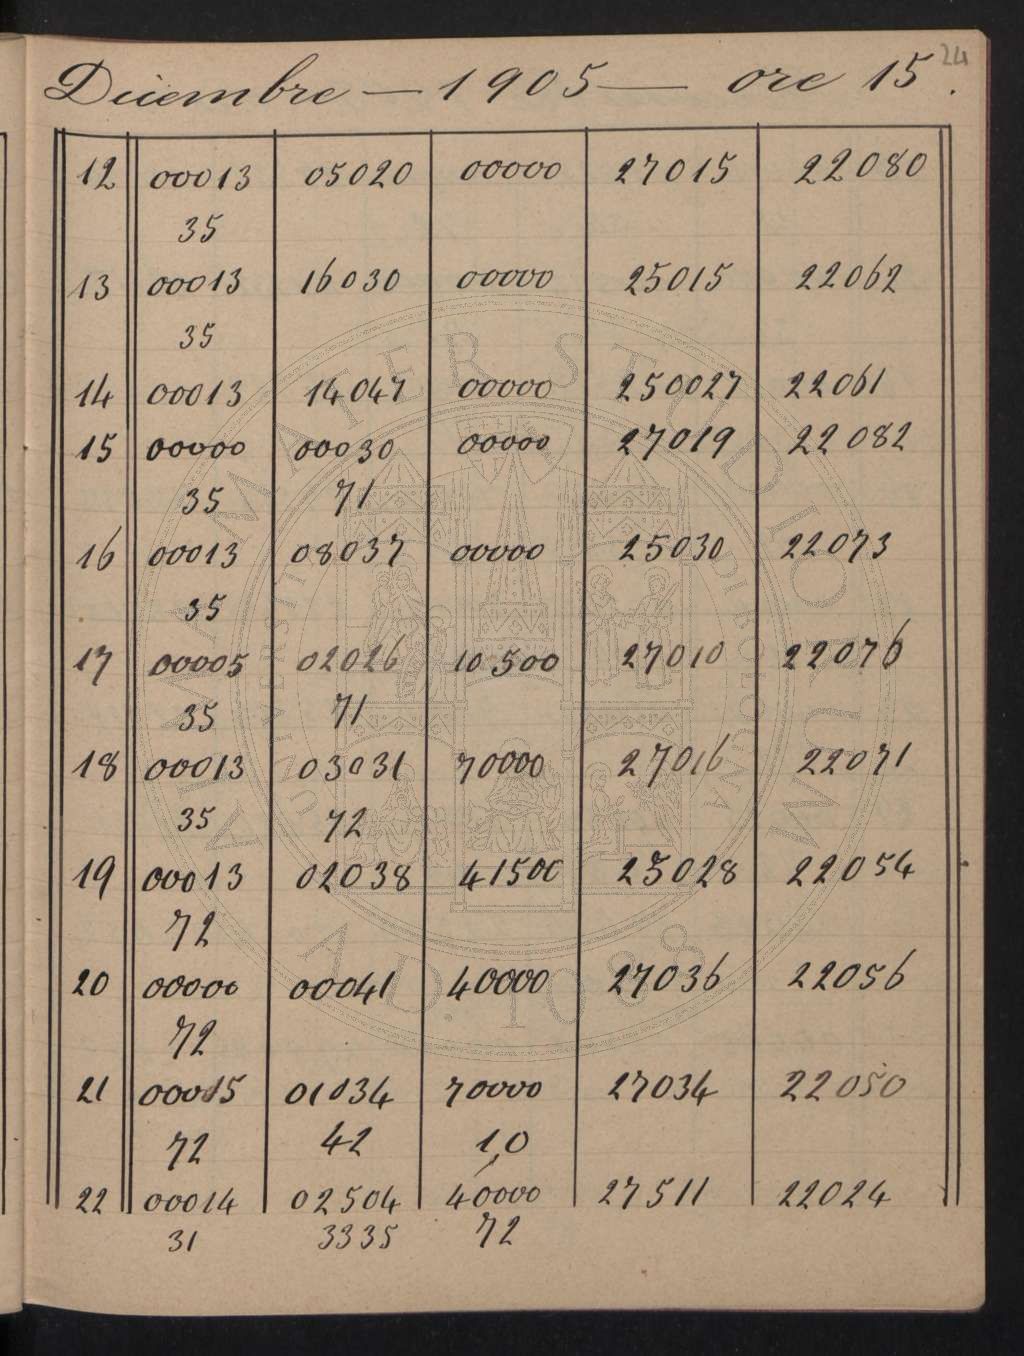 24
Dicembre — 1905 — ore 15.
12 00013 05020 00000 27015 22080
35
13 00013 16030 00000 25015 22062
35
14 00013 14047 00000 250027 22061
15 00000 00030 00000 27019 22082
35 71
16 00013 08037 00000 25030 22073
35
17 00005 02026 10500 27010 22076
35 71
18 00013 03031 70000 27016 22071
35 72
19 00013 02038 41500 25028 22054
72
20 00000 00041 40000 27036 22056
72
21 00015 01034 70000 27034 22050
72 42 1,0
22 00014 02504 40000 27511 22024
31 3335 72
ALMA MATER STUDIORUM
A.D. 1088